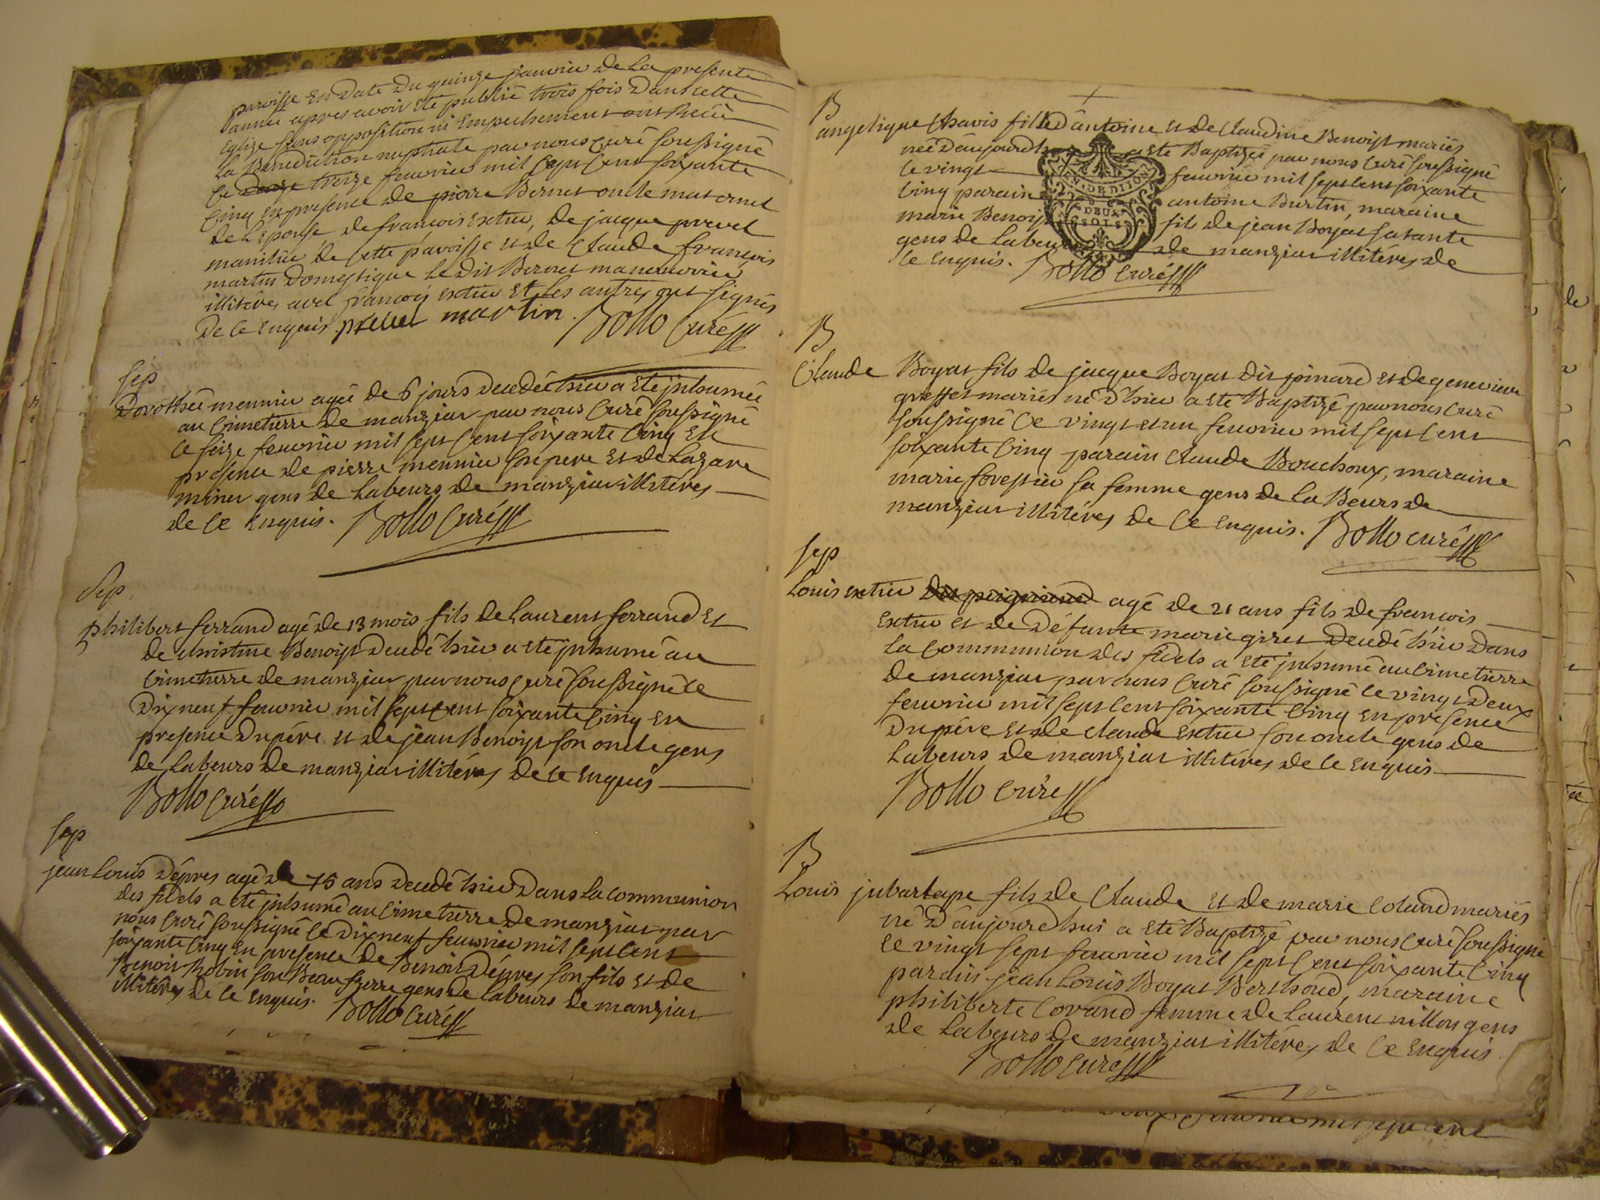 paroisse en date du quinze janvier de la presente
année apres avoir été publié trois fois dans cette
église sans opposition ni empechement ont reçu
la Benediction nuptiale par nous curé soussigné
le treize feuvrier mil sept cent soixante
cinq en presence de pierre Bernet oncle maternel
de l'epouse de françois extier, de jacque
de cette paroisse et de Claude françois
martin domestique le dit Bernet manouvrier
illitérés avec françois extier et les autres ont signés
de ce enquis martin. Bollo curé
sep
Dorothée meunier agé de 6 jours decedé hier a été inhumée
au cimetierre de manziat par nous curé soussigné
le seize feuvrier mil sept cent soixante cinq en
presence de pierre meunier son pere et de Lazare
gens de Labeurs de manziat illitérés
de ce enquis. Bollo curé
Sep
philibert ferrand agé de 13 mois fils de Laurent ferrand et
de christine Benoist decedé hier a été inhumé au
cimetierre de manziat par nous curé soussigné le
dix neuf feuvrier mil sept cent soixante cinq en
presence du pére et de jean Benoist son oncle gens
de Labeurs de manziat illitérés de ce enquis
Bollo curé
sep
jean Louis dépres agé de 75 ans decedé hier dans la communion
des fidels a été inhumé au cimetierre de manziat par
nous curé soussigné le dix neuf feuvrier mil sept cent
soixante cinq en presence de Benoist dépres son fils et de
Benoit Robin son Beau frere gens de Labeurs de manziat
illitérés de ce enquis. Bollo curé
B
angelique Chavis fille d'antoine et de Claudine Benoist mariés
née d'aujourd'h a été Baptisée par nous curé soussigné
le vingt feuvrier mil sept cent soixante
cinq parain antoine Burtin, maraine
marie Benoi fils de jean Boyat sa tante
gens de Labeu de manziat illitérés de
ce enquis. Bollo curé
DEUX
SOLS
B
Claude Boyat fils de jacque Boyat dit joinard et de genevieve
greffet mariés né d'hier a été Baptizé par nous curé
soussigné le vingt et un feuvrier mil sept cent
soixante cinq parain Claude Bouchoux, maraine
marie forestier sa femme gens de La Beurs de
manziat illitérés de ce enquis. Bollo curé
sep
Louis extier agé de 21 ans fils de francois
extier et de défante marie decedé hier dans
la communion des fidels a été inhumé au cimetierre
de manziat par nous curé soussigné le vingt deux
feuvrier mil sept cent soixante cinq en présence
du pére et de claude extier son oncle gens de
Labeurs de manziat illitérés de ce enquis
Bollo curé
B
Louis jubartape fils de Claude et de marie Coland mariés
né d'aujourd hui a été Baptizé par nous curé soussigné
le vingt sept feuvrier mil sept cent soixante cinq
parain jean Louis Boyat Berthoud, maraine
philiberte Corand femme de Laurent nillon gens
de Labeurs de manziat illitérés de ce enquis
Bollo curé